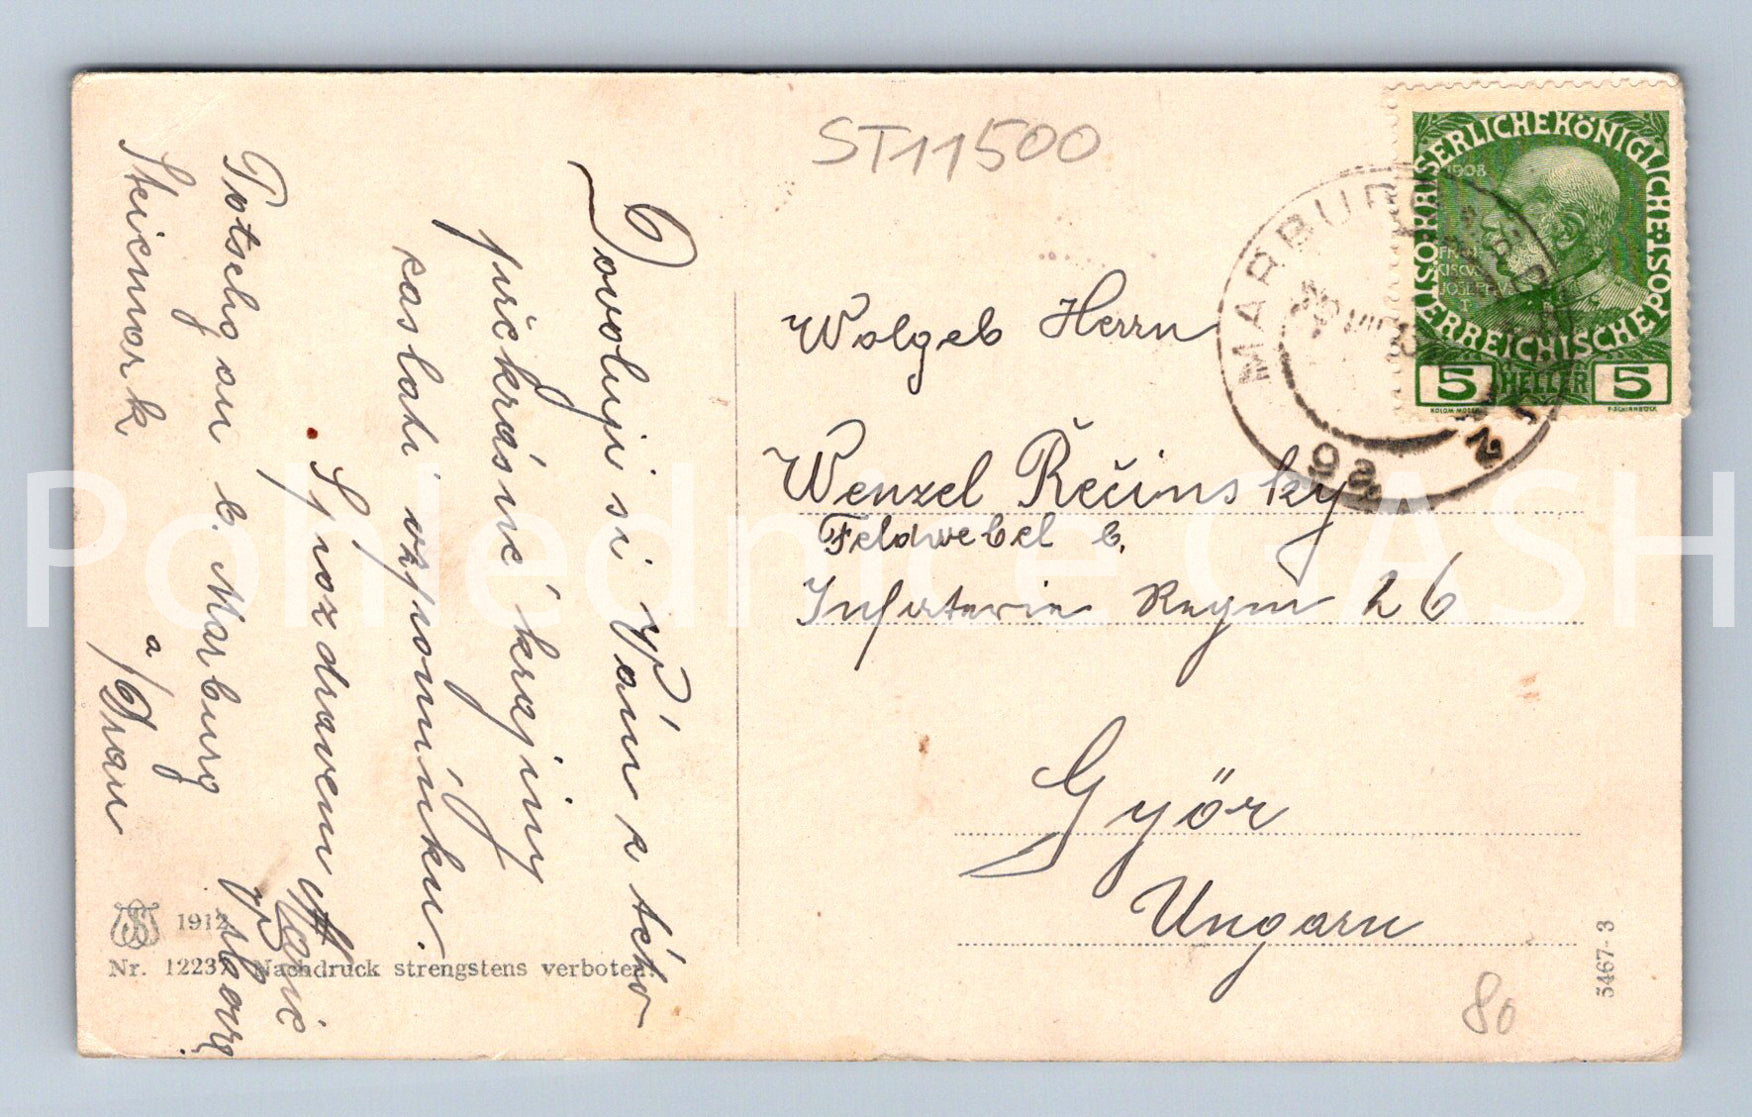 ST11500
Dovoluji si Vám z této
překrásné krajiny
zaslati vzpomínku.
S pozdravem
Potschgau b. Marburg
a/Drau
Steiermark
Wolgeb Herrn
Wenzel Řečinsky
Feldwebel b.
Infaterie Regm 26
Győr
Ungarn
KAISERLICHE KÖNIGLICHE ÖSTERREICHISCHE POST
1908
FRAN
CISCVS
JOSEPHVS
I
5 HELLER 5
MARBURG
9a
2
1912
Nr. 1223 Nachdruck strengstens verboten!
5467-3
80
Pohlednice GASH